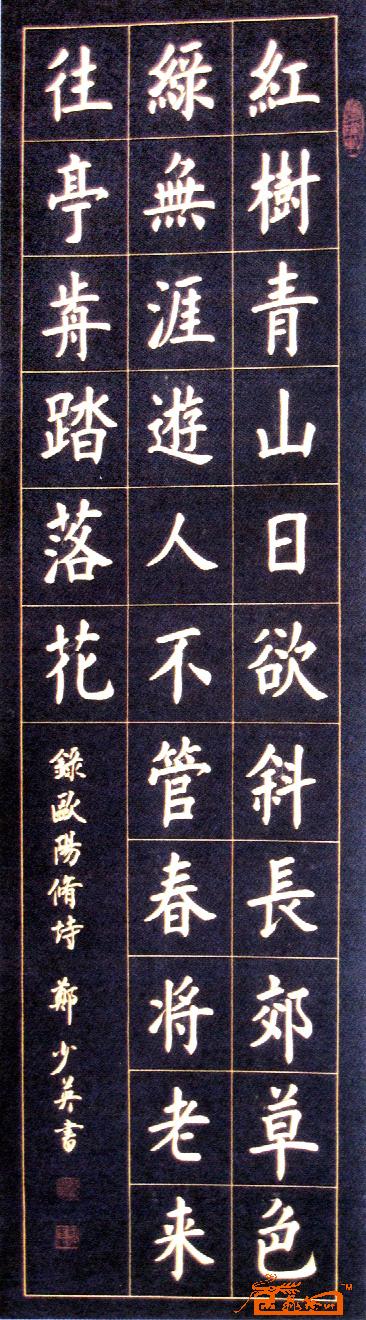 紅樹青山日欲斜長郊草色
綠無涯遊人不管春将老来
往亭歬踏落花
錄歐陽脩詩 鄭少英書